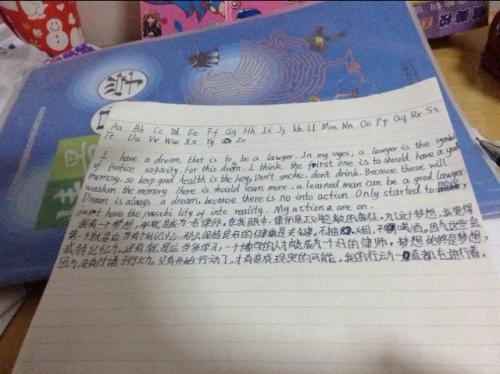 Aa Bb Cc Dd Ee Ff Gg Hh Ii Jj Kk Ll Mm Nn Oo Pp Qq Rr Ss
Tt Uu Vv Ww Xx Yy Zz
I have a dream, that is to be a lawyer. In my eyes, a lawyer is the symbol
of justice sagacity. For this dream. I think the first one is to should have a good
memory. so keep good health is the key. Don't smoke, don't drink. Because these will
weaken the memory. There is should learn more, a learned man can be a good lawyer
Dream is always a dream, because there is no into action. Only started to
have the possibility of into reality. My action are on.
我有一个梦想,那就是成为名律师。在我眼中,律师是正义的象征。为了这个梦想,我觉得
第一个就是应当有个好记忆。那么保持良好的健康是关键。不抽烟,不喝酒。因为这些会
减弱记忆力。还有就是应当多学习,一个博学的人才能成为个好的律师。梦想始终是梦想,
因为没有付诸于行动。只有开始行动了,才有变成现实的可能。我的行动一直都在进行着。